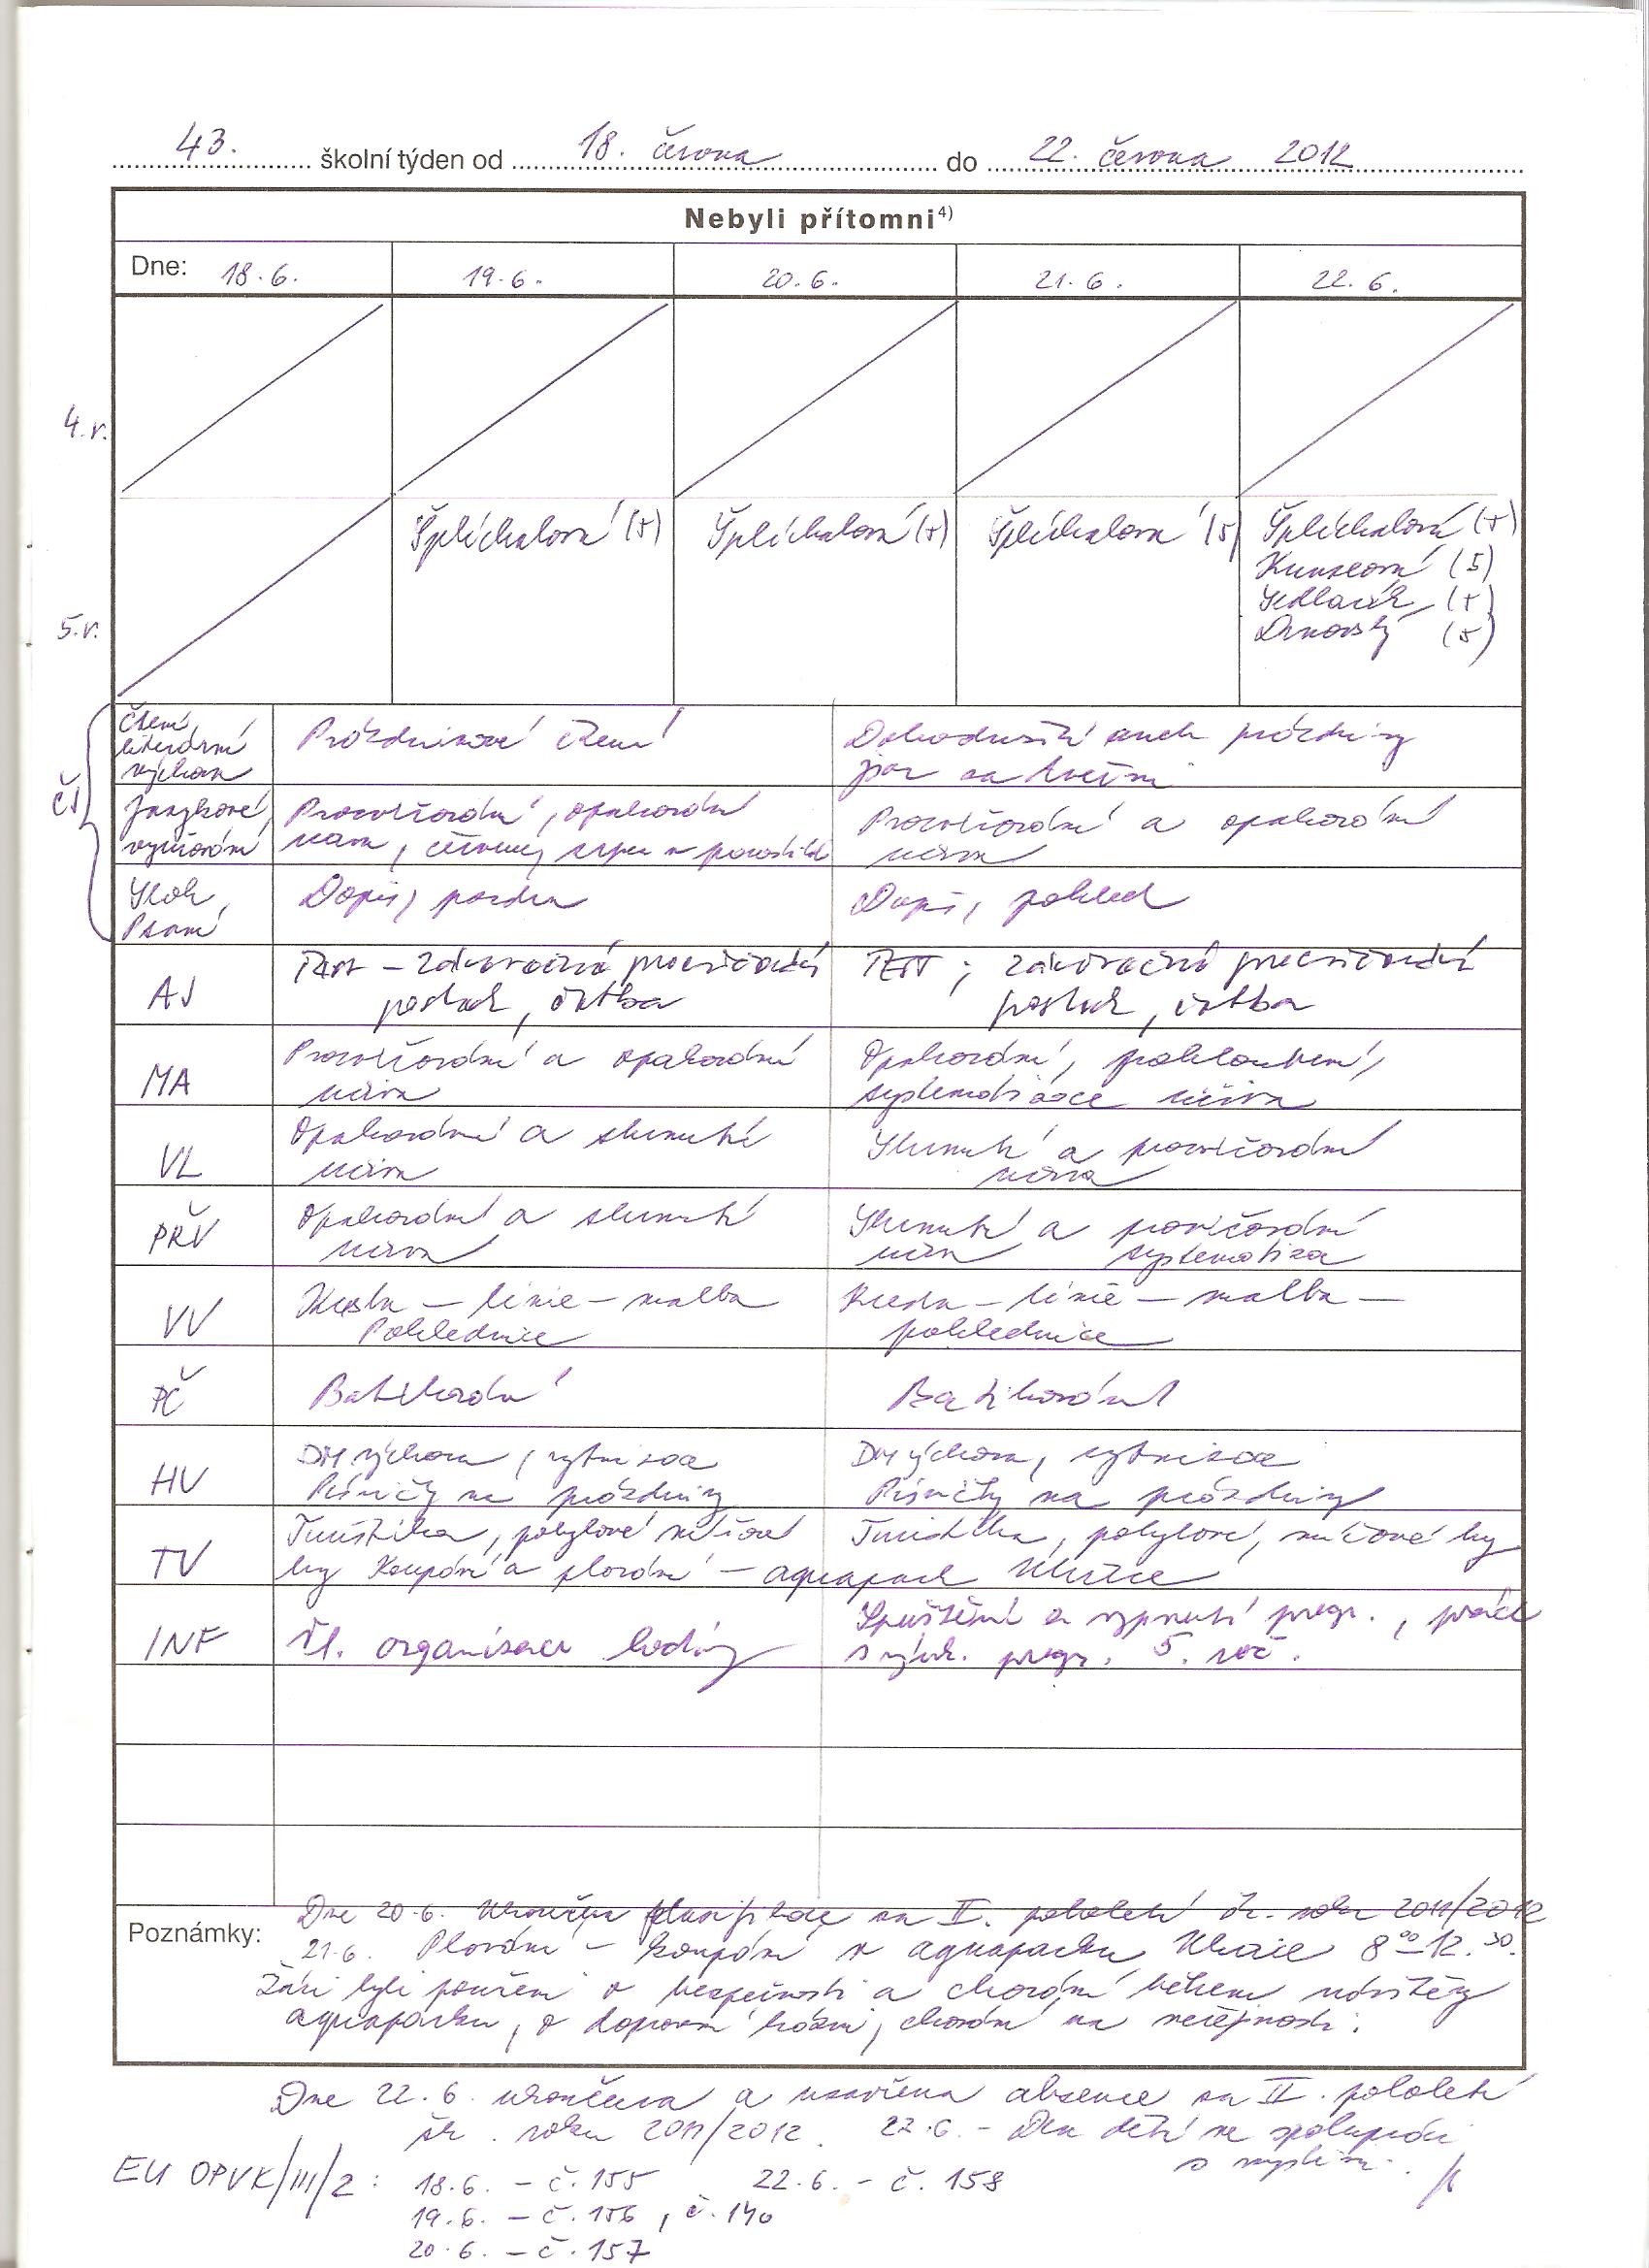 43. školní týden od 18. června do 22. června 2012
Nebyli přítomni4)
Dne: 18.6. 19.6. 20.6. 21.6. 22.6.
4.r.
Šplíchalová (5) Šplíchalová (5) Šplíchalová (5) Šplíchalová (5)
(5)
5.r. Sedláček (5)
Drnovský (5)
Čtení, Prázdninové čtení Dobrodružství aneb prázdniny
literární
výchova jsou za dveřmi
ČJ
Jazykové Procvičování, opakování Procvičování a opakování
vyučování učiva, učiva
Sloh, Dopis, pozdrav Dopis, pohled
Psaní
AJ Test – závěrečné procvičování Test; závěrečné procvičování
poslech, četba poslech, četba
MA Procvičování a opakování Opakování, prohloubení,
učiva systematizace učiva
VL Opakování a shrnutí Shrnutí a procvičování
učiva učiva
PŘV Opakování a shrnutí Shrnutí a procvičování
učiva učiva systematizace
VV Kresba – linie – malba Kresba – linie – malba –
Pohlednice pohlednice
PČ Batikování Batikování
HV DM výchova, rytmizace DM výchova, rytmizace
Písničky na prázdniny Písničky na prázdniny
TV Turistika, pohybové míčové Turistika, pohybové, míčové hry
hry Koupání a plavání – aquapark
INF Čt. organizace hodiny Spuštění a vypnutí progr., práce
s výuk. progr. 5. roč.
Poznámky: Dne 20.6. ukončena klasifikace za II. pololetí šk. roku 2011/2012
21.6. Plavání – koupání v aquaparku 8 00 – 12.30.
Žáci byli poučeni o bezpečnosti a chování během návštěvy
aquaparku, o dopravní kázni, chování na veřejnosti.
Dne 22.6. ukončena a uzavřena absence za II. pololetí
šk. roku 2011/2012. 22.6. – Den dětí ve spolupráci
s
EU OPVK/III/2: 18.6. – č. 155 22.6. – č. 158
19.6. – č. 156, č. 140
20.6. – č. 157